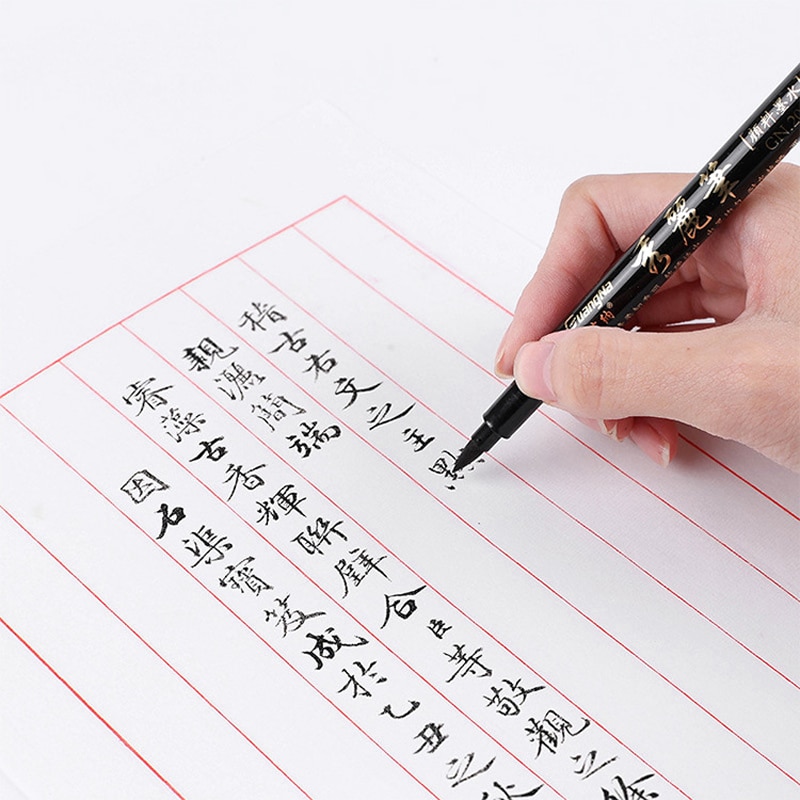 稽古右文之主
親灑簡端
睿藻古香輝聯璧合臣等敬觀之餘
因石渠寶笈成於乙丑之秋
GuangNa
秀麗筆
颜料墨水